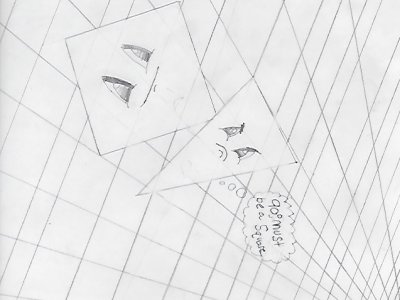 90° must
be a Square